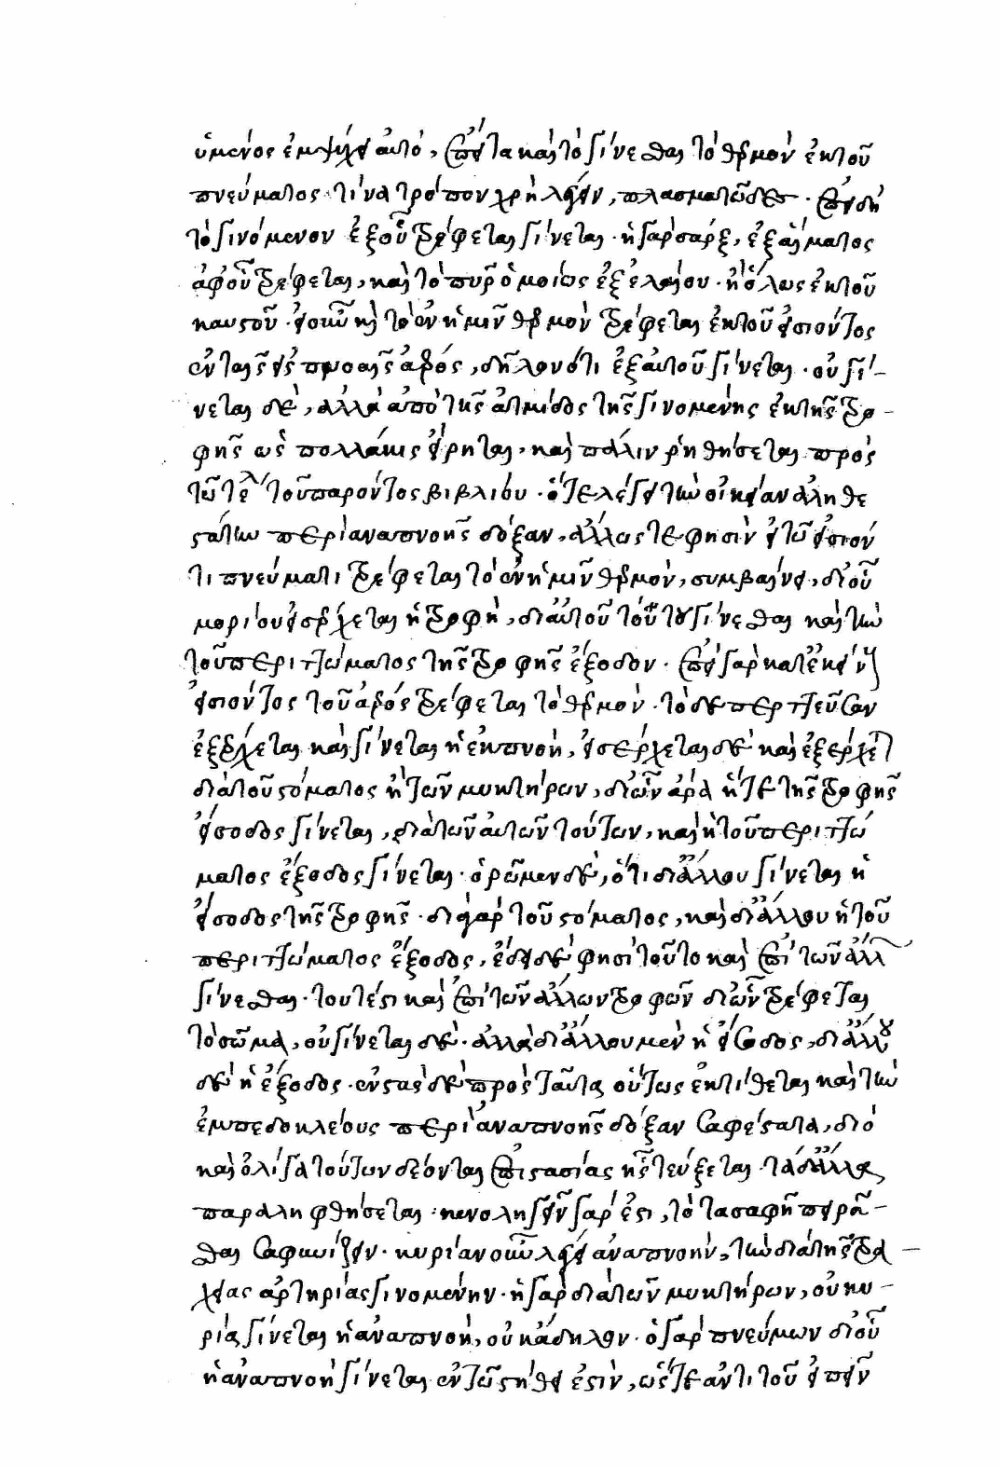 ὑμενός ἐμψύχει αὐτό, ἔπειτα καὶ τὸ γίνεσθαι τὸ θερμὸν ἐκ τοῦ
πνεύματος τίνα τρόπον χρὴ λέγειν, πλασματῶδες. ἐπειδὴ
τὸ γινόμενον ἐξ οὗ τρέφεται γίνεται. ἡ γὰρ σάρξ, ἐξ αἵματος
ἀφ' οὗ τρέφεται, καὶ τὸ πῦρ ὁμοίως ἐξ ἐλαίου. ἢ ὅλως ἐκ τοῦ
καυστοῦ. εἰ οὖν καὶ τὸ ἐν ἡμῖν θερμὸν τρέφεται ἐκ τοῦ εἰσιόντος
ἐν ταῖς εἰσπνοαῖς ἀέρος, δηλονότι ἐξ αὐτοῦ γίνεται. οὐ γί-
νεται δὲ, ἀλλὰ ἀπὸ τῆς ἀτμίδος τῆς γινομένης ἐκ τῆς τρο-
φῆς ὡς πολλάκις εἴρηται, καὶ πάλιν ῥηθήσεται πρὸς
τῶ τέλει τοῦ παρόντος βιβλίου. ὁ τελέγει τὴν οἰκείαν ἀληθε
στάτην περὶ ἀναπνοῆς δόξαν, ἄλλως τε φησὶν εἰ τῶ εἰσιόν
τι πνεύματι τρέφεται τὸ ἐν ἡμῖν θερμὸν, συμβαίνει, δι' οὗ
μορίου εἰσέρχεται ἡ τροφὴ, διὰ αὐτοῦ τούτου γίνεσθαι καὶ τὴν
τοῦ περιττώματος τῆς τροφῆς ἔξοδον. ἐπεὶ γὰρ κατ' ἐκείνου
εἰσιόντος τοῦ ἀέρος τρέφεται τὸ θερμὸν. τὸ δὲ περιττεῦσαν
ἐξέρχεται καὶ γίνεται ἡ ἐκπνοὴ, εἰσέρχεται δὲ καὶ ἐξέρχεται
διὰ τοῦ στόματος ἢ τῶν μυκτήρων, δι' ὧν ἄρα ἥ τε τῆς τροφῆς
εἴσοδος γίνεται, διὰ τῶν αὐτῶν τούτων, καὶ ἡ τοῦ περιττώ
ματος ἔξοδος γίνεται. ὁρῶμεν δὲ, ὅτι δι' ἄλλου γίνεται ἡ
εἴσοδος τῆς τροφῆς. διὰ γὰρ τοῦ στόματος, καὶ δι' ἄλλου ἡ τοῦ
περιττώματος ἔξοδος, ἔδει δὲ φησὶ τοῦτο καὶ ἐπὶ τῶν ἄλλων
γίνεσθαι. τουτέστι καὶ ἐπὶ τῶν ἄλλων τροφῶν δι' ὧν τρέφεται
τὸ σῶμα, οὐ γίνεται δὲ. ἀλλὰ δι' ἄλλου μὲν ἡ εἴσοδος, δι' ἄλλου
δὲ ἡ ἔξοδος. ἐνστὰς δὲ πρὸς ταῦτα οὕτως ἐκτίθεται καὶ τὴν
ἐμπεδοκλέους περὶ ἀναπνοῆς δόξαν σαφέστατα, διὸ
καὶ ὀλίγα τούτων δέονται ἐπιστασίας ἧς τεύξεται. τὰ δ' ἄλλα
παραληφθήσεται. κενολογεῖν γάρ ἐστι, τὸ τὰ σαφῆ πειρᾶ-
σθαι σαφηνίζειν. κυρίαν οὖν λέγει ἀναπνοὴν, τὴν διὰ τῆς τρα-
χείας ἀρτηρίας γινομένην. ἡ γὰρ διὰ τῶν μυκτήρων, οὐ κυ-
ρία γίνεται ἡ ἀναπνοὴ, οὐκ ἄδηλον. ὁ γὰρ πνεύμων δι' οὗ
ἡ ἀναπνοὴ γίνεται ἐν τῶ στήθει ἐστὶν, ὥστε ἀντὶ τοῦ εἰπεῖν